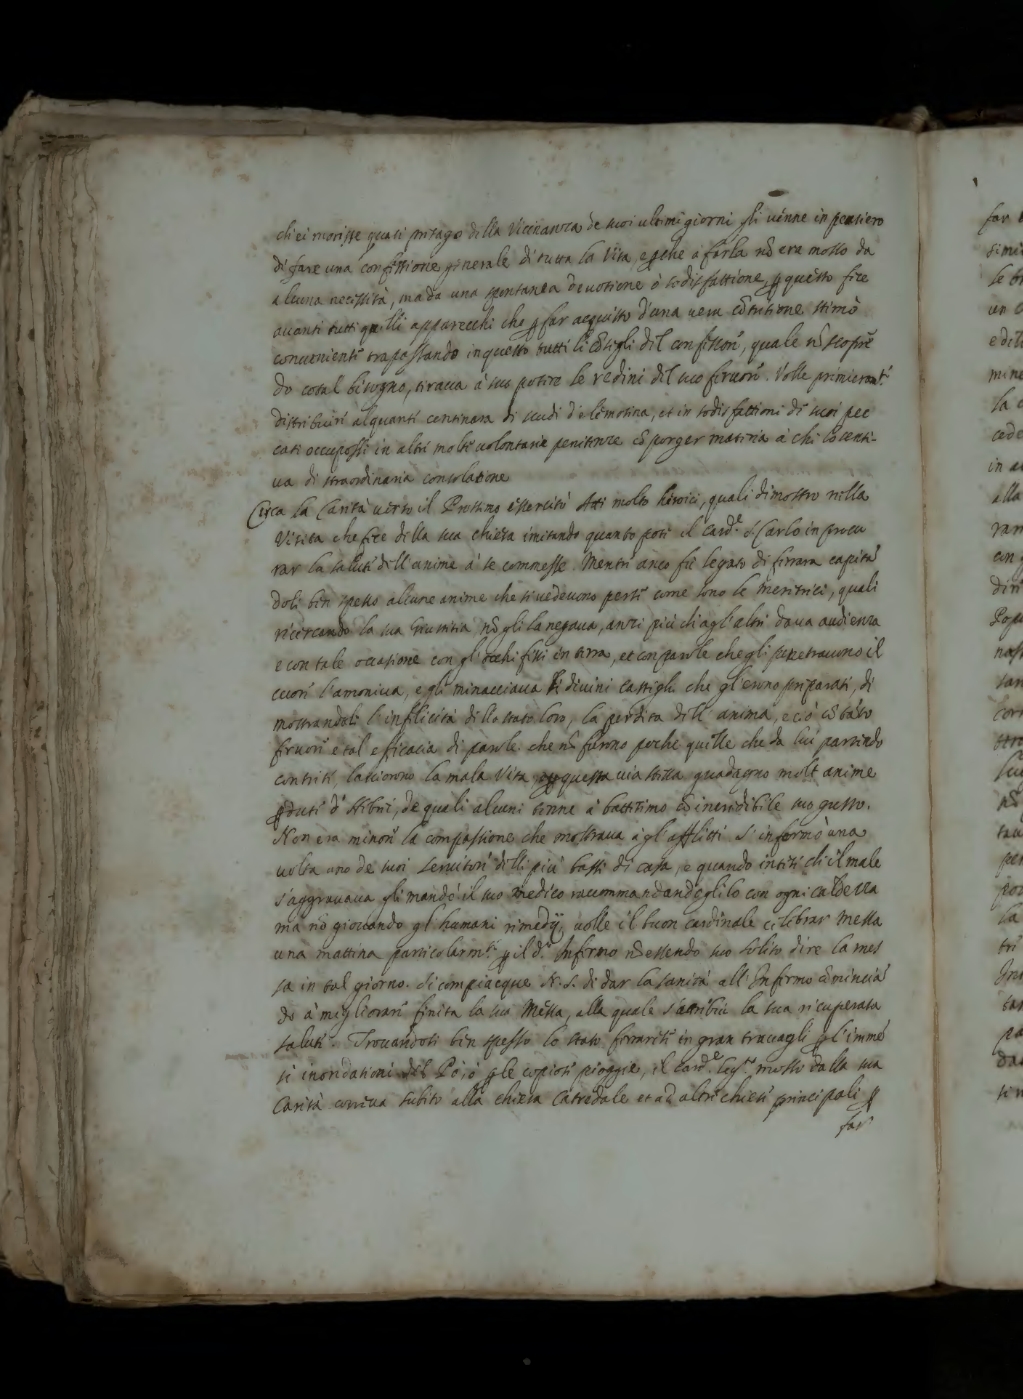 ch'ei morisse quasi presago della Vicinanza de suoi ultimi giorni gli venne in pensiero
di fare una confessione generale di tutta la Vita, e perche a farla nõ era mosso da
alcuna necessità, ma da una spontanea devotione ò sodisfattione, p questo fece
avanti tutti quelli apparecchi che p far acquisto d'una vera cõtritione stimò
convenienti trapassando in questo tutti li cõsigli del confessore, quale nõ scopreñ
do cotal bisogno, tirava à suo potere le redini del suo fervore. Volle primieramte
distribuire alquanti centinara di scudi d'elemosina, et in sodisfattioni de suoi pec
cati occupossi in altre molte volontarie penitenze cõ porger materia à chi lo senti-
va di straordinaria consolatione
Circa la Carità verso il Prossimo essercitò Atti molto heroici, quali dimostrò nella
Visita che fece della sua chiesa imitando quanto potè il Card.e S. Carlo in procu
rar la salute dell'anime à se commesse. Mentre anco fù legato di ferrara capitã
doli ben spesso alcune anime che si vedevano perse come sono le Meretrici, quali
ricercando la sua Giustitia nõ gli la negava, anzi più ch'agl'altri dava audienza
e con tale occasione con gl'occhi fissi in terra, et con parole che gli penetravono il
cuore l'amoniva, e gli minacciava di divini castighi che gl'erano preparati, di
mostrandoli l'infelicità dello stato loro, la perdita dell'anima, e ciò cõ tãto
fervore e tal efficacia di parole che nõ furno poche quelle che da lui partendo
contrite, lasciorno la mala Vita p questa via stessa guadagnò molt'anime
pdute d'Hebrei, de quali alcuni tenne à battesimo cõ incredibile suo gusto.
Non era minore la compassione che mostrava agl'afflitti. S'infermò una
volta uno de suoi servitori delli più bassi di casa, e quando intese ch'il male
s'aggravava gli mandò il suo Medico raccommandandoglilo con ogni caldezza
mà nõ giovando gl'humani rimedij, volle il buon cardinale celebrar Messa
una mattina particolarmte p il d.o Infermo nõ essendo suo solito dire la mes
sa in tal giorno. Si compiacque N. S. di dar la sanità all'Infermo cõminciã
do à migliorare finita la sua Messa, alla quale s'attribuì la sua ricuperata
salute. Trovandosi ben spesso lo stato ferrarese in gran travagli p l'immē
se inondationi del Pò, ò p le copiose pioggie, il Card.e leg.o mosso dalla sua
Carità correva subito alla chiesa Catredale et ad altre chiese principali p
far